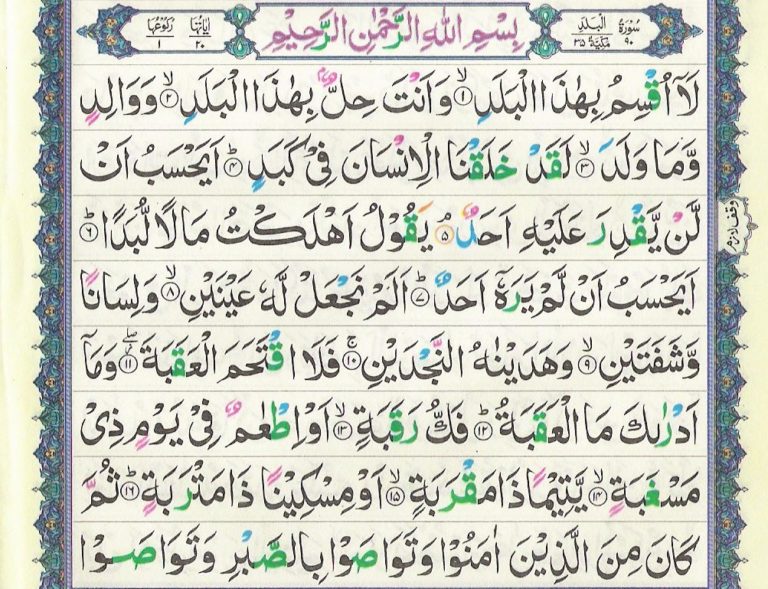 سُوْرَةُ ٩٠ الْبَلَدِ مَكِّيَّةٌ ٣٥ بِسْمِ اللهِ الرَّحْمٰنِ الرَّحِيْمِ اٰيَاتُهَا ٢٠ رُكُوْعُهَا ١
لَآ اُقْسِمُ بِهٰذَا الْبَلَدِ ۙ﴿١﴾ وَاَنْتَ حِلٌّۢ بِهٰذَا الْبَلَدِ ۙ﴿٢﴾ وَوَالِدٍ
وَّمَا وَلَدَ ۙ﴿٣﴾ لَقَدْ خَلَقْنَا الْاِنْسَانَ فِيْ كَبَدٍ ؕ﴿٤﴾ اَيَحْسَبُ اَنْ
لَّنْ يَّقْدِرَ عَلَيْهِ اَحَدٌ ۘ﴿٥﴾ يَقُوْلُ اَهْلَكْتُ مَالًا لُّبَدًا ؕ﴿٦﴾
وقف لازم
اَيَحْسَبُ اَنْ لَّمْ يَرَهٗٓ اَحَدٌ ؕ﴿٧﴾ اَلَمْ نَجْعَلْ لَّهٗ عَيْنَيْنِ ۙ﴿٨﴾ وَلِسَانًا
وَّشَفَتَيْنِ ۙ﴿٩﴾ وَهَدَيْنٰهُ النَّجْدَيْنِ ۚ﴿١٠﴾ فَلَا اقْتَحَمَ الْعَقَبَةَ ۖ﴿١١﴾ وَمَآ
اَدْرٰىكَ مَا الْعَقَبَةُ ؕ﴿١٢﴾ فَكُّ رَقَبَةٍ ۙ﴿١٣﴾ اَوْ اِطْعٰمٌ فِيْ يَوْمٍ ذِيْ
مَسْغَبَةٍ ۙ﴿١٤﴾ يَّتِيْمًا ذَا مَقْرَبَةٍ ۙ﴿١٥﴾ اَوْ مِسْكِيْنًا ذَا مَتْرَبَةٍ ؕ﴿١٦﴾ ثُمَّ
كَانَ مِنَ الَّذِيْنَ اٰمَنُوْا وَتَوَاصَوْا بِالصَّبْرِ وَتَوَاصَوْا